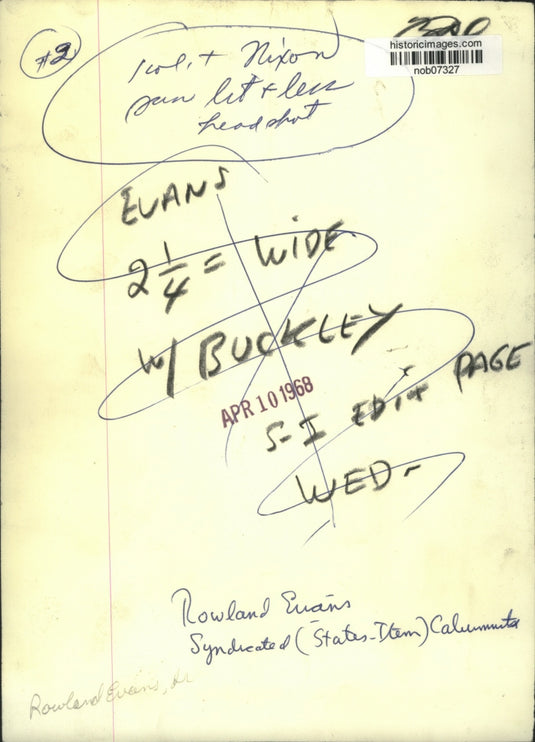 #2
historicimages.com
nob07327
1 col. + Nixon
head shot
EVANS
2 1/4 = WIDE
W/ BUCKLEY
APR 10 1968
S-I EDIT PAGE
WED-
Rowland Evans
Syndicated (States-Item) Columnist
Rowland Evans, Jr